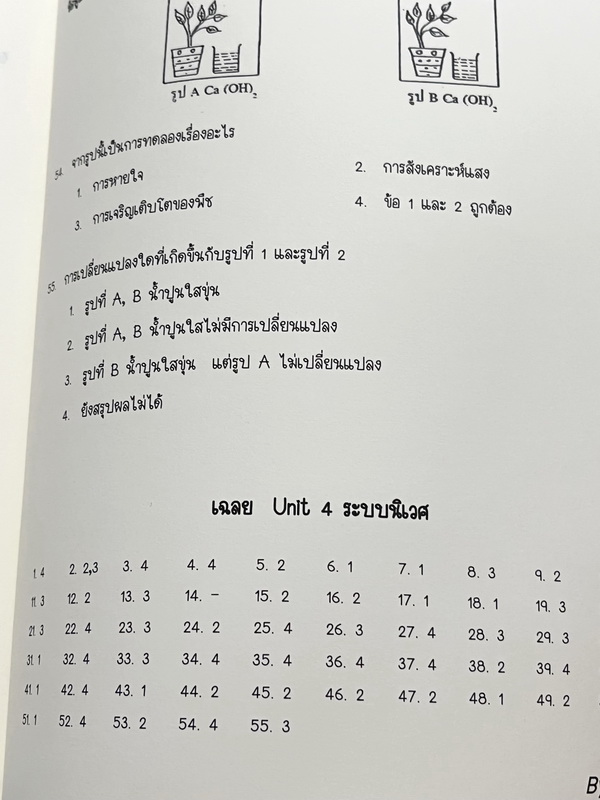 รูป A Ca (OH)2
รูป B Ca (OH)2
54. จากรูปนี้เป็นการทดลองเรื่องอะไร
1. การหายใจ
2. การสังเคราะห์แสง
3. การเจริญเติบโตของพืช
4. ข้อ 1 และ 2 ถูกต้อง
55. การเปลี่ยนแปลงใดที่เกิดขึ้นกับรูปที่ 1 และรูปที่ 2
1. รูปที่ A, B น้ำปูนใสขุ่น
2. รูปที่ A, B น้ำปูนใสไม่มีการเปลี่ยนแปลง
3. รูปที่ B น้ำปูนใสขุ่น แต่รูป A ไม่เปลี่ยนแปลง
4. ยังสรุปผลไม่ได้
เฉลย Unit 4 ระบบนิเวศ
1. 4 2. 2,3 3. 4 4. 4 5. 2 6. 1 7. 1 8. 3 9. 2
11. 3 12. 2 13. 3 14. - 15. 2 16. 2 17. 1 18. 1 19. 3
21. 3 22. 4 23. 3 24. 2 25. 4 26. 3 27. 4 28. 3 29. 3
31. 1 32. 4 33. 3 34. 4 35. 4 36. 4 37. 4 38. 2 39. 4
41. 1 42. 4 43. 1 44. 2 45. 2 46. 2 47. 2 48. 1 49. 2
51. 1 52. 4 53. 2 54. 4 55. 3